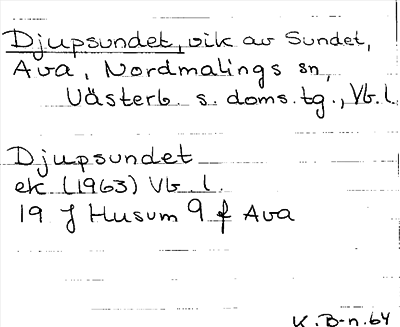 Djupsundet, vik av Sundet,
Ava, Nordmalings sn,
Västerb. s. doms. tg., Vb. l.
Djupsundet
ek (1963) Vb. l.
19 J Husum 9 f Ava
K. B-n. 64